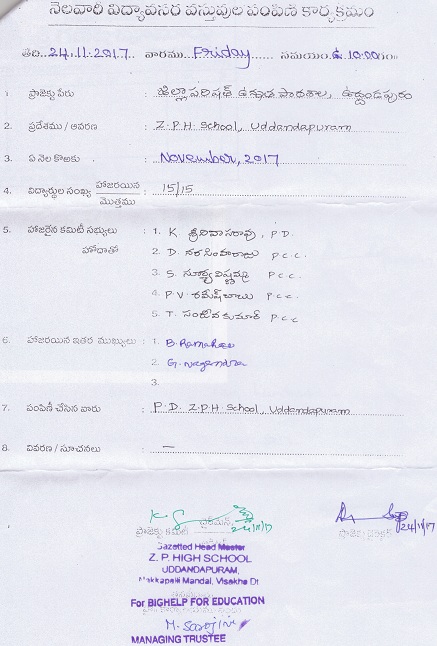 నెలవారి విద్యావసర వస్తువుల పంపిణి కార్యక్రమం
తేది 24.11.2017. వారము Friday సమయం ఉ 10.00గం
1. ప్రాజెక్టు పేరు : జిల్లా పరిషత్ ఉన్నత పాఠశాల, ఉద్దండపురం
2. ప్రదేశము / ఆవరణ : Z.P.H School, Uddandapuram
3. ఏ నెల కొఱకు : November, 2017
4. విద్యార్థుల సంఖ్య హాజరయిన మొత్తము : 15/15
5. హాజరైన కమిటీ సభ్యులు హోదాతో : 1. K. శ్రీనివాసరావు, P.D.
2. D. నరసింహరాజు P.C.C.
3. S. సూర్య P.C.C.
4. P.V రమేష్ బాబు P.C.C.
5. T. సంజీవ కుమార్ P.C.C
6. హాజరయిన ఇతర ముఖ్యులు : 1. B.
2. G. Nagendra
3.
7. పంపిణీ చేసిన వారు : P.D. Z.P.H School, Uddandapuram
8. వివరణ / సూచనలు : —
24/11/17
24/11/17
ప్రాజెక్టు కమిటీ ఛైర్మన్,
Gazetted Head Master
Z. P. HIGH SCHOOL
UDDANDAPURAM,
Nakkapalli Mandal, Visakha Dt.
For BIGHELP FOR EDUCATION
M. Sarojini
MANAGING TRUSTEE